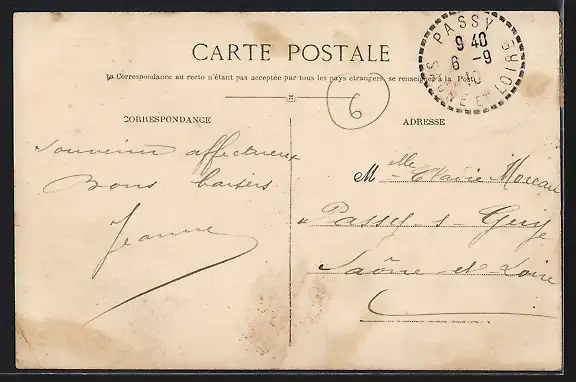 CARTE POSTALE
La Correspondance au recto n'étant pas acceptée par tous les pays étrangers, se renseigner à la Poste
PASSY
9 40
6 - 9
10
SAONE ET LOIRE
6
CORRESPONDANCE
ADRESSE
Souvenir affectueux
Bons baisers
Jeanne
Melle Claire Moreau
à Passy s Guye
Saône-et-Loire